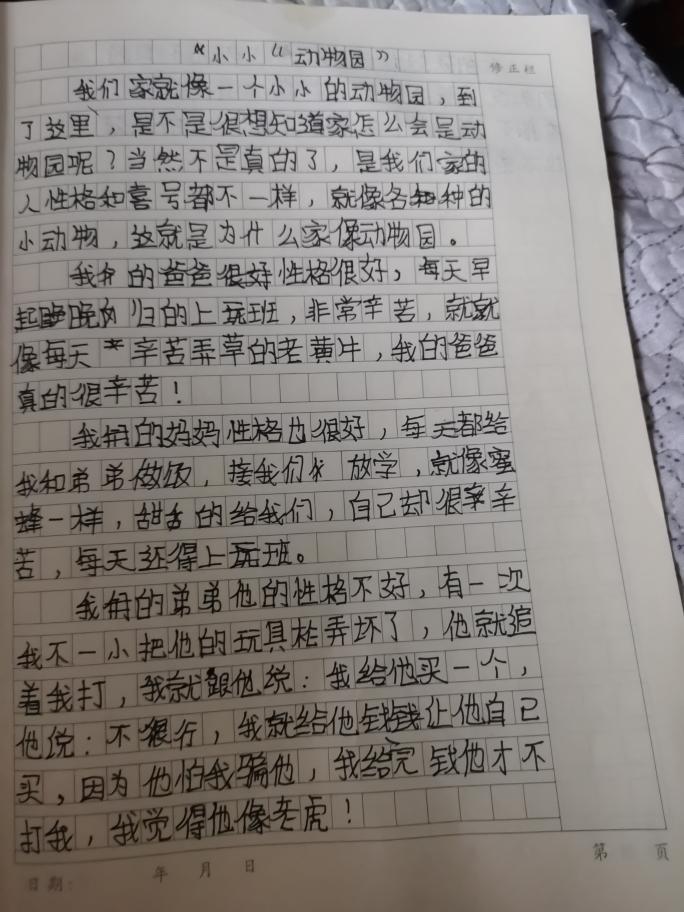 “小小“动物园”
修正栏
我们家就像一个小小的动物园，到
了这里，是不是很想知道家怎么会是动
物园呢？当然不是真的了，是我们家的
人性格和喜号都不一样，就像各种的
小动物，这就是为什么家像动物园。
我的爸爸很好性格很好，每天早
起晚归的上班，非常辛苦，就
像每天辛苦弄草的老黄牛，我的爸爸
真的很辛苦！
我的妈妈性格也很好，每天都给
我和弟弟做饭，接我们放学，就像蜜
蜂一样，甜的给我们，自己却很辛
苦，每天还得上班。
我的弟弟他的性格不好，有一次
我不一小把他的玩具枪弄坏了，他就追
着我打，我就跟他说：我给他买一个，
他说：不行，我就给他钱让他自己
买，因为他怕我骗他，我给完钱他才不
打我，我觉得他像老虎！
日期： 年 月 日
第 页